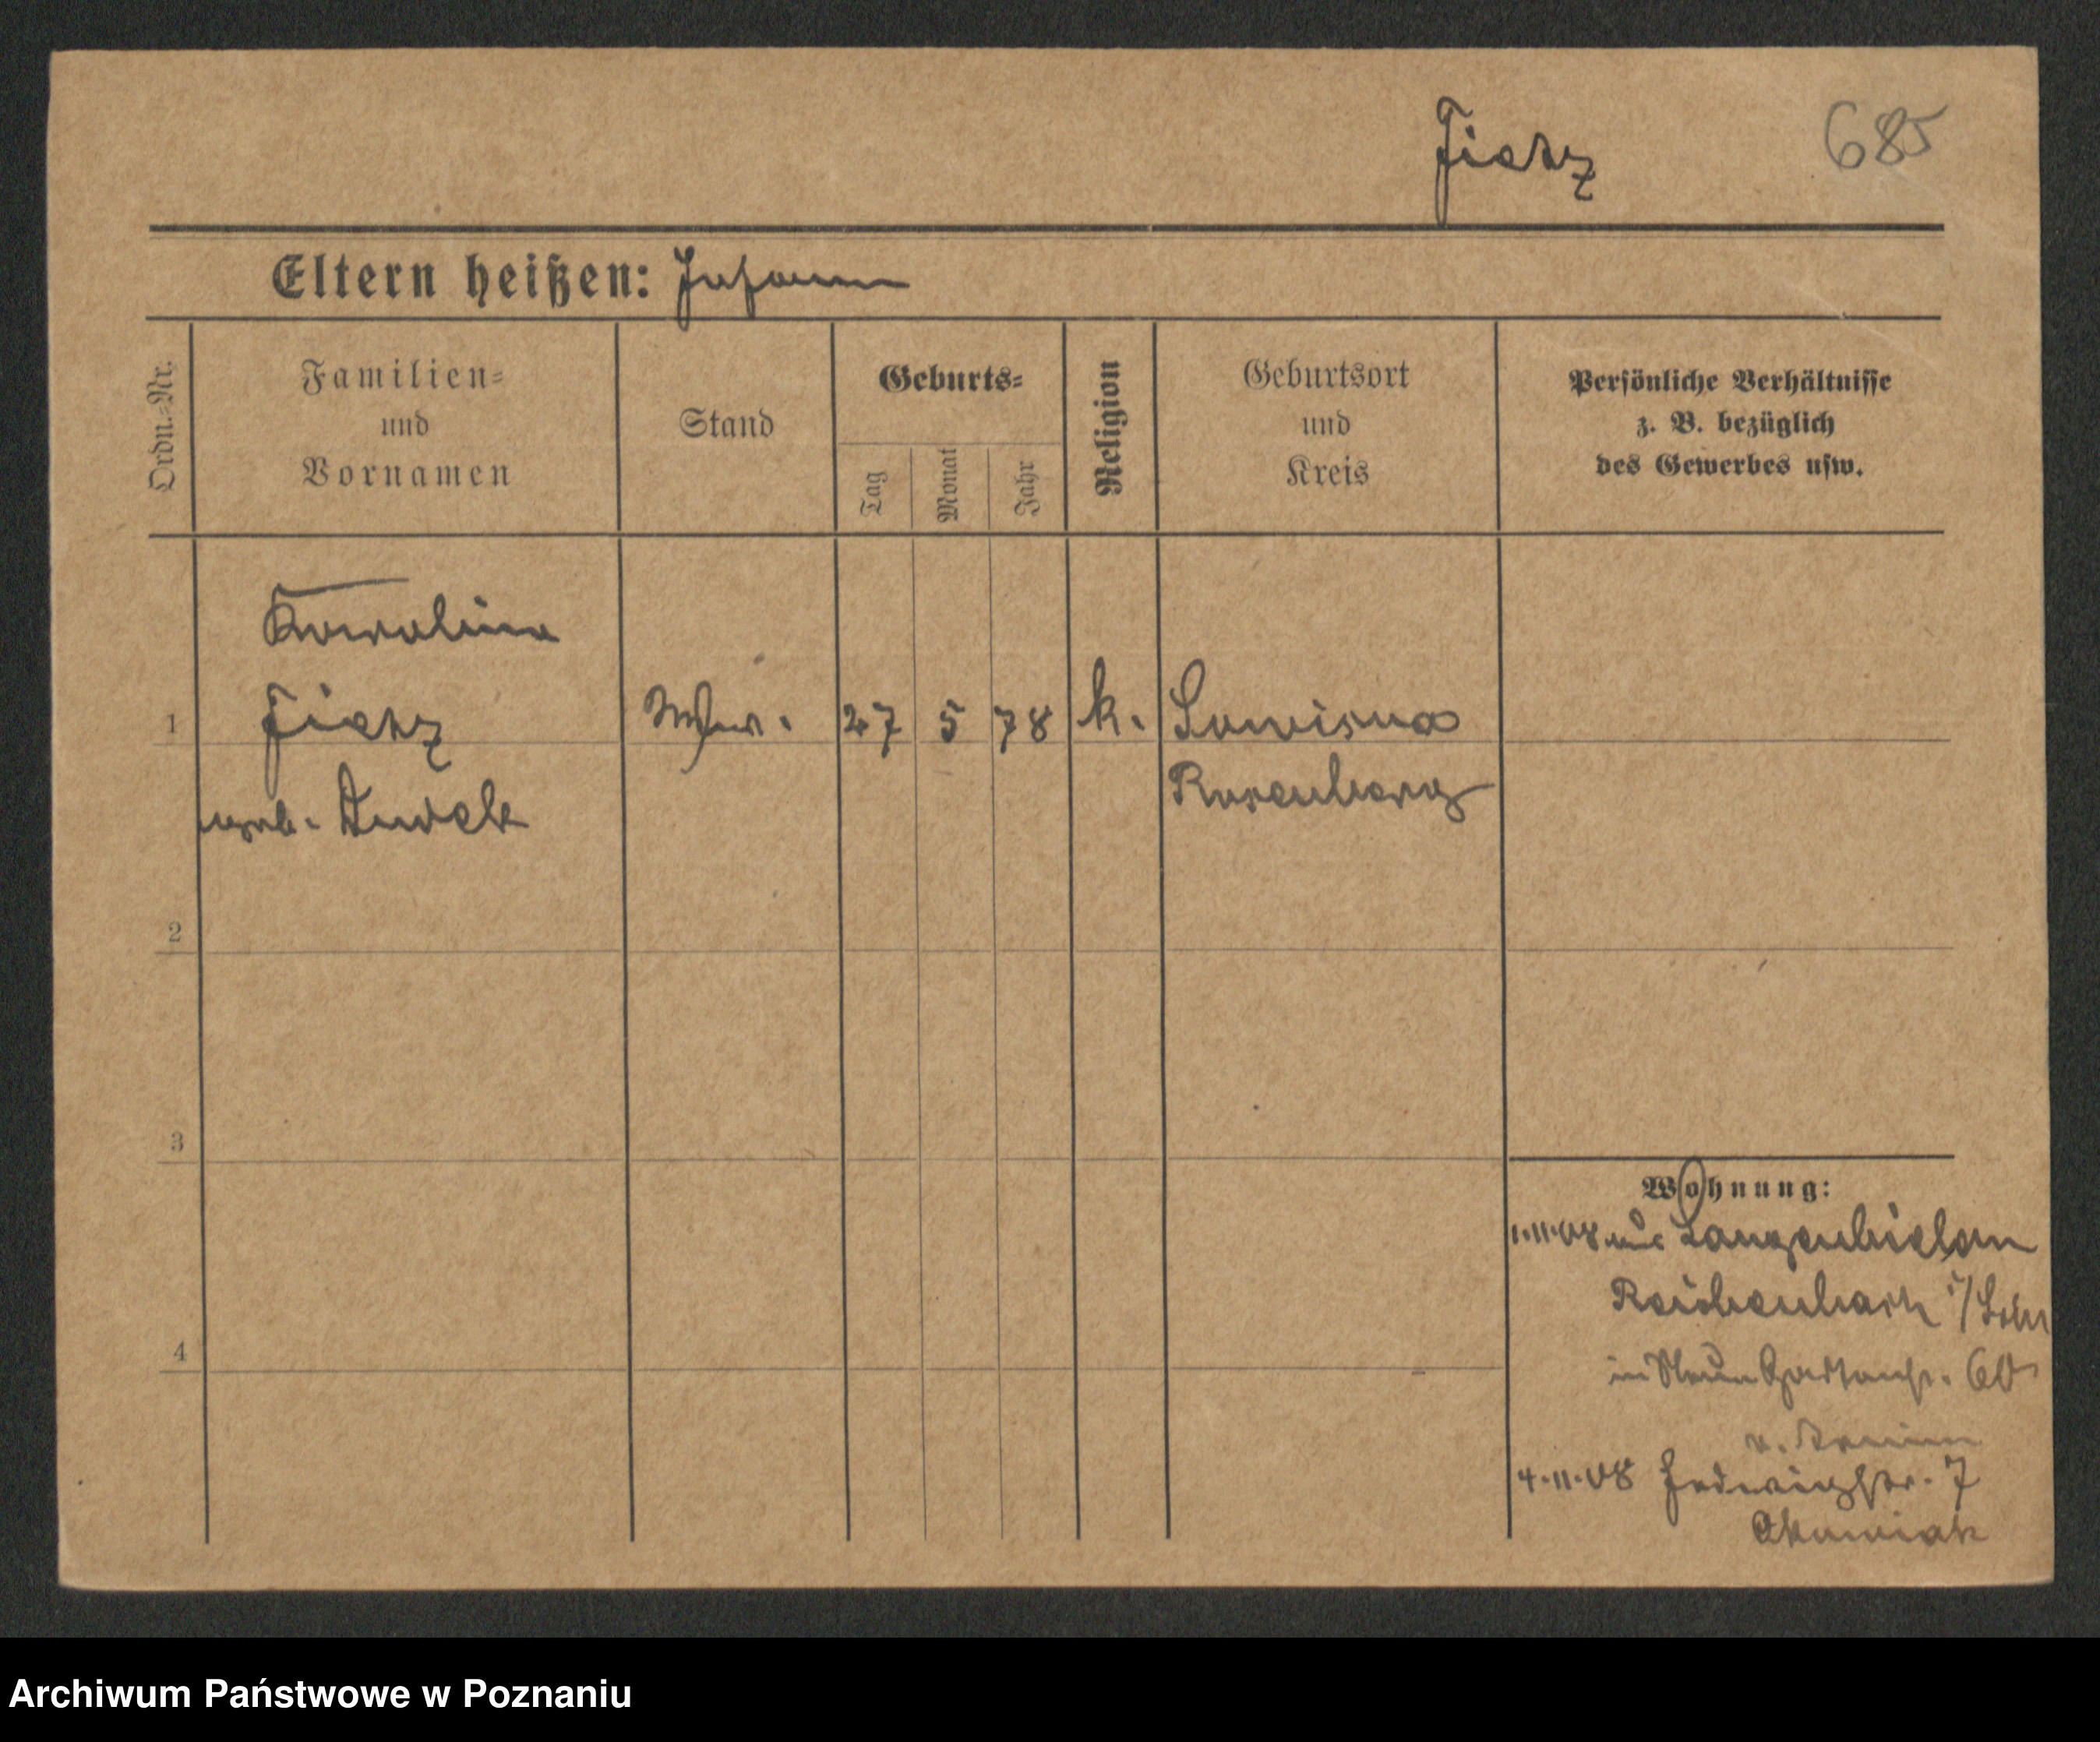 Fietz 685
Eltern heißen: Johann
Ordn.=Nr.
Familien=
und
Vornamen
Stand
Geburts=
Tag
Monat
Jahr
Religion
Geburtsort
und
Kreis
Persönliche Verhältnisse
z. B. bezüglich
des Gewerbes usw.
Karoline
1 Fietz 27 5 78 k. Sowisna
Rosenberg
geb. Dudek
2
3
4
Wohnung:
1.11.08 aus Langenbielau
Reichenbach i/Schl
in Neun Gartenstr. 60
v. Arnim
4.11.08 Hedwigstr. 7
Archiwum Państwowe w Poznaniu